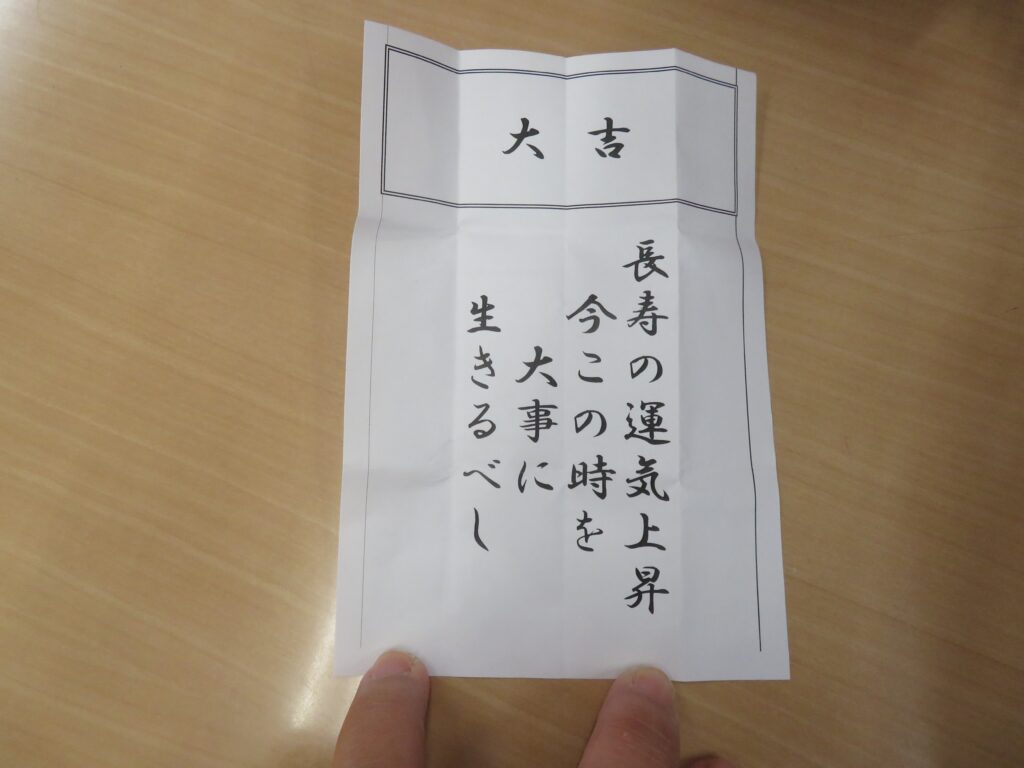 大吉
長寿の運気上昇
今この時を
大事に
生きるべし